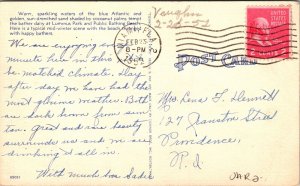 Warm, sparkling waters of the blue Atlantic and
golden, sun-drenched sand shaded by coconut palms tempt
the bather daily at Lummus Park and Public Bathing Beach.
Here is a typical mid-winter scene with the beach
with happy bathers.
We are enjoying
much here in this
be matched climate. Day
after day we have had the
most glorious weather. Both
an dark brown from sun
tan. Great and rare beauty
surrounds us and we are
drinking it all in.
With much love Sadie
Vaughn
2-20-51
MIAMI FLA.
FEB 13
8-PM
POST CARD
Mrs. Lena F. Dennett
127 Transton Street
Providence,
R.I